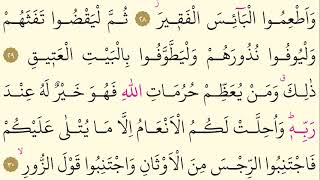 وَاَطْعِمُوا الْبَٓائِسَ الْفَق۪يرَۘ ﴿٢٨﴾ ثُمَّ لْيَقْضُوا تَفَثَهُمْ
وَلْيُوفُوا نُذُورَهُمْ وَلْيَطَّوَّفُوا بِالْبَيْتِ الْعَت۪يقِ ﴿٢٩﴾
ذٰلِكَۗ وَمَنْ يُعَظِّمْ حُرُمَاتِ اللّٰهِ فَهُوَ خَيْرٌ لَهُ عِنْدَ
رَبِّه۪ۜ وَاُحِلَّتْ لَكُمُ الْاَنْعَامُ اِلَّا مَا يُتْلٰى عَلَيْكُمْ
فَاجْتَنِبُوا الرِّجْسَ مِنَ الْاَوْثَانِ وَاجْتَنِبُوا قَوْلَ الزُّورِۙ ﴿٣٠﴾